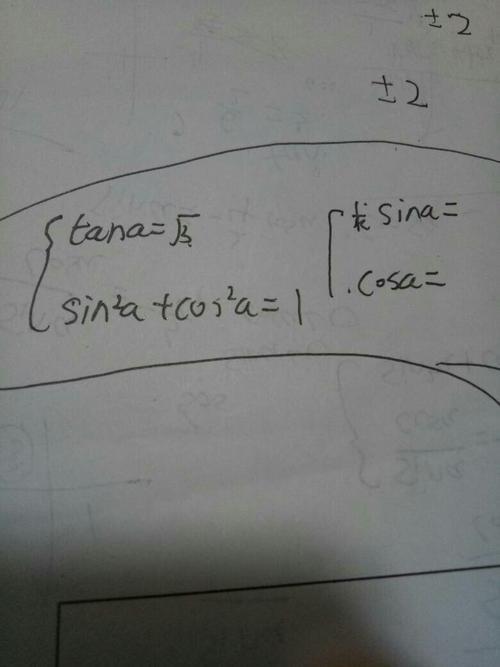 ±2
±2
tana=√3
sin²a+cos²a=1
求 sina=
cosa=